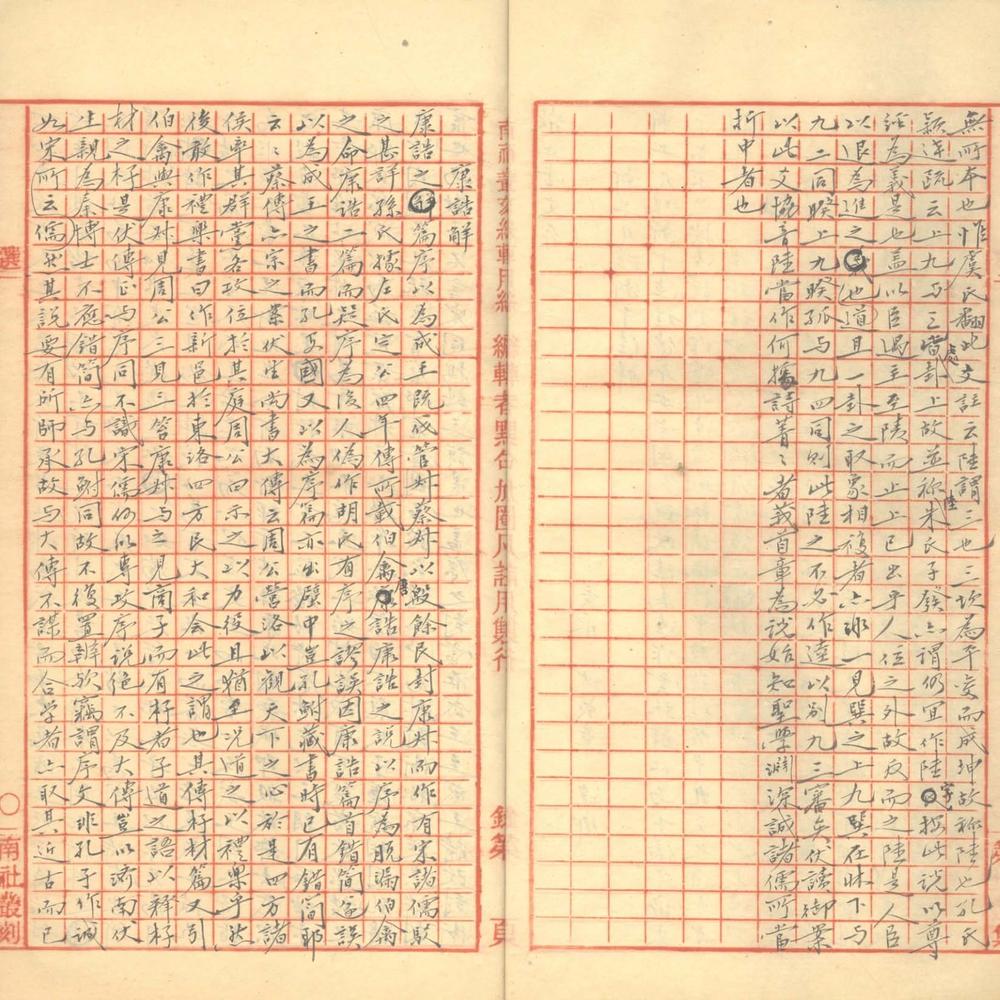 無所本也惟虞氏翻此文註云陸謂三也三坎為平變而成坤故称陸也孔氏
穎達疏云上九与三處卦上故並称陸朱氏子發亦謂仍宜作陸字按此説以尊
經為義是也蓋以臣過主至陸而止上已出乎人位之外故反而之陸是人臣
以退為進之道且一卦之取象相複者亦非一見巽之上九巽在牀下与
九二同睽上九睽孤与九四同則此陸之不必作逵以别九三審矣伏讀御案
以此文協音陸當作何據詩菁〻者莪首章為説始知聖學淵深誠諸儒所當
折中者也
康誥解
康誥之篇序以為成王既伐管叔蔡叔以殷餘民封康叔而作有宋諸儒駁
之甚詳孫氏據左氏定公四年傳所載伯禽唐誥康誥之説以序為脱漏伯禽
之命唐誥二篇而疑序為後人偽作胡氏有序之謬誤因康誥篇首錯簡遂誤
以為成王之書而孔安國又以為序篇亦出壁中豈孔鮒藏書時已有錯簡耶
云〻蔡傳亦宗之案伏生尚書大傳云周公營洛以觀天下之心於是四方諸
侯率其群黨各攻位於其庭周公曰示之以力役且猶至况道之以禮樂乎然
後敢作禮樂書曰作新邑於東洛四方民大和会此之謂也其傳梓材篇又引
伯禽與康叔見周公三見三笞康叔与之見商子而有梓者子道之語以釋梓
材之梓是伏傳正与序同不識宋儒何以專攻序説絶不及大傳豈以濟南伏
生親為秦博士不應錯簡亦与孔鮒同故不復置辨欤竊謂序文非孔子作誠
如宋儒所云然其説要有所師承故与大傳不謀而合学者亦取其近古而已
選
〇
南社叢刻